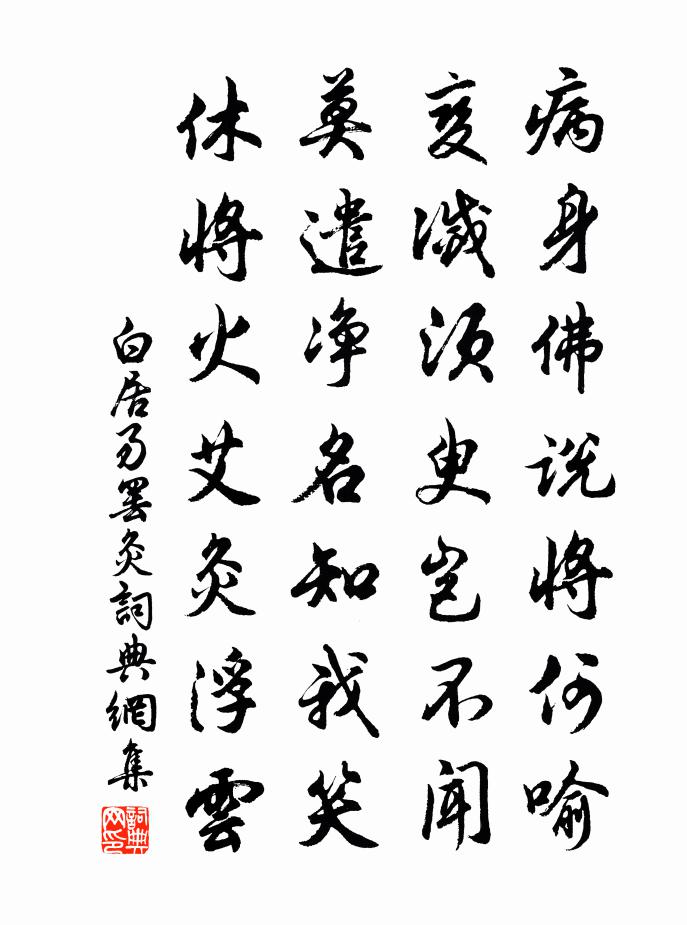 病身佛说將何喻
变滅须臾岂不闻
莫遣净名知我笑
休將火艾灸浮雲
白居易罢灸詞典網集
詞典网印